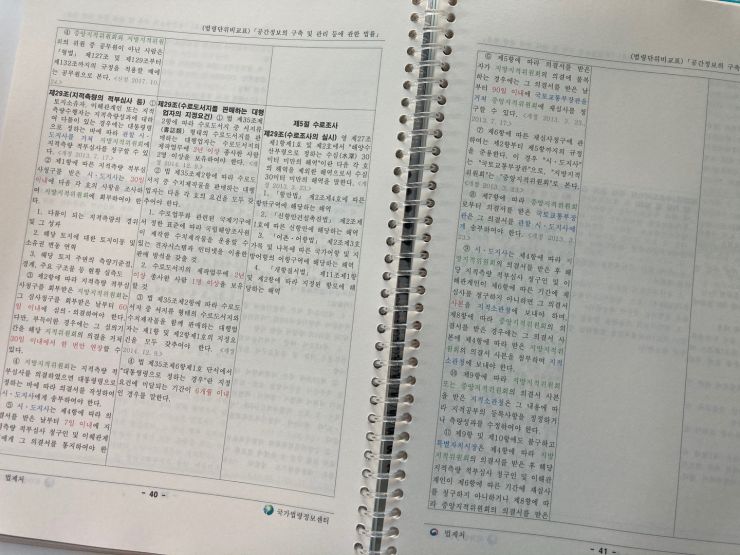 (법령단위비교표)「공간정보의 구축 및 관리 등에 관한 법률」
④ 중앙지적위원회와 지방지적위원
회의 위원 중 공무원이 아닌 사람은
「형법」 제127조 및 제129조부터
제132조까지의 규정을 적용할 때에
는 공무원으로 본다.
제29조(지적측량의 적부심사 등) ①
토지소유자, 이해관계인 또는 지적
측량수행자는 지적측량성과에 대하
여 다툼이 있는 경우에는 대통령령
으로 정하는 바에 따라 관할 시·
도지사를 거쳐 지방지적위원회에
지적측량 적부심사를 청구할 수 있
다. <개정 2013. 7. 17.>
② 제1항에 따른 지적측량 적부심
사청구를 받은 시·도지사는 30일
이내에 다음 각 호의 사항을 조사하
여 지방지적위원회에 회부하여야 한
다.
1. 다툼이 되는 지적측량의 경위
및 그 성과
2. 해당 토지에 대한 토지이동 및
소유권 변동 연혁
3. 해당 토지 주변의 측량기준점,
경계, 주요 구조물 등 현황 실측도
③ 제2항에 따라 지적측량 적부심
사청구를 회부받은 지방지적위원회는
그 심사청구를 회부받은 날부터 60
일 이내에 심의·의결하여야 한다.
다만, 부득이한 경우에는 그 심의기
간을 해당 지적위원회의 의결을 거쳐
30일 이내에서 한 번만 연장할 수
있다.
④ 지방지적위원회는 지적측량 적
부심사를 의결하였으면 대통령령으로
정하는 바에 따라 의결서를 작성하여
시·도지사에게 송부하여야 한다.
⑤ 시·도지사는 제4항에 따라 의
결서를 받은 날부터 7일 이내에 지
적측량 적부심사 청구인 및 이해관계
인에게 그 의결서를 통지하여야 한
제29조(수로도서지를 판매하는 대행
업자의 지정요건) ① 법 제35조제
2항에 따라 수로도서지 중 서지류
(書誌類) 형태의 수로도서지를 판매
하는 대행업자는 수로도서지의
제작업무에 2년 이상 종사한 사람
2명 이상을 보유하여야 한다. <개정
2014. 12. 9.>
② 법 제35조제2항에 따라 수로도
서지 중 수치제작물을 판매하는 대행
업자는 다음 각 호의 요건을 모두 갖
추어야 한다.
1. 수로업무와 관련된 국제기구에
서 정한 표준에 따라 국립해양조사원
이 제작한 수치제작물을 운용할 수
있는 전자시스템과 인터넷을 이용한
판매 방식을 갖출 것
2. 수로도서지의 제작업무에 2년
이상 종사한 사람 1명 이상을 보유할
것
③ 법 제35조제2항에 따라 수로도
서지 중 서지류 형태의 수로도서지와
수치제작물을 함께 판매하는 대행업
자는 제1항 및 제2항제1호의 지정요
건을 모두 갖추어야 한다. <개정
2014. 12. 9.>
④ 법 제35조제6항제1호 단서에서
"대통령령으로 정하는 경우"란 지정
요건에 미달되는 기간이 6개월 이내
인 경우를 말한다.
제5절 수로조사
제29조(수로조사의 실시) 영 제27조
제1항제1호 및 제2호에서 "해양수
산부령으로 정하는 수심(水深) 30
미터 미만의 해역"이란 다음 각 호
의 해역을 제외한 해역으로서 수심
30미터 미만의 해역을 말한다. <개
정 2013. 3. 23.>
1. 「항만법」 제2조제4호에 따른
항만구역에 해당하는 해역
2. 「신항만건설촉진법」 제2조제
1호에 따른 신항만에 해당하는 해역
3. 「어촌·어항법」 제2조제3호
가목 및 나목에 따른 국가어항 및 지
방어항의 어항구역에 해당하는 해역
4. 「재항질서법」 제11조제1항
및 제2항에 따라 지정된 항로에 해
당하는 해역
법제처
- 40 -
국가법령정보센터
(법령단위비교표)「공간정보의 구축 및
⑥ 제5항에 따라 의결서를 받은
자가 지방지적위원회의 의결에 불복
하는 경우에는 그 의결서를 받은 날부터
90일 이내에 국토교통부장관을
거쳐 중앙지적위원회에 재심사를 청
구할 수 있다. <개정 2013. 3. 23.,
2013. 7. 17.>
⑦ 제6항에 따른 재심사청구에 관
하여는 제2항부터 제5항까지의 규정
을 준용한다. 이 경우 "시·도지사"
는 "국토교통부장관"으로, "지방지적
위원회"는 "중앙지적위원회"로 본다.
<개정 2013. 3. 23.>
⑧ 제7항에 따라 중앙지적위원회
로부터 의결서를 받은 국토교통부장
관은 그 의결서를 관할 시·도지사
에게 송부하여야 한다. <개정 2013. 3.
23.>
⑨ 시·도지사는 제4항에 따라 지
방지적위원회의 의결서를 받은 후 해
당 지적측량 적부심사 청구인 및 이
해관계인이 제6항에 따른 기간에 재
심사를 청구하지 아니하면 그 의결서
사본을 지적소관청에 보내야 하며,
제8항에 따라 중앙지적위원회의 의
결서를 받은 경우에는 그 의결서 사
본에 제4항에 따라 받은 지방지적위
원회의 의결서 사본을 첨부하여 지적
소관청에 보내야 한다.
⑩ 제9항에 따라 지방지적위원회
또는 중앙지적위원회의 의결서 사본
을 받은 지적소관청은 그 내용에 따
라 지적공부의 등록사항을 정정하거
나 측량성과를 수정하여야 한다.
⑪ 제9항 및 제10항에도 불구하고
특별자치시장은 제4항에 따라 지방
지적위원회의 의결서를 받은 후 해당
지적측량 적부심사 청구인 및 이해관
계인이 제6항에 따른 기간에 재심사
를 청구하지 아니하거나 제8항에 따
라 중앙지적위원회의 의결서를 받은
법제처
- 41 -